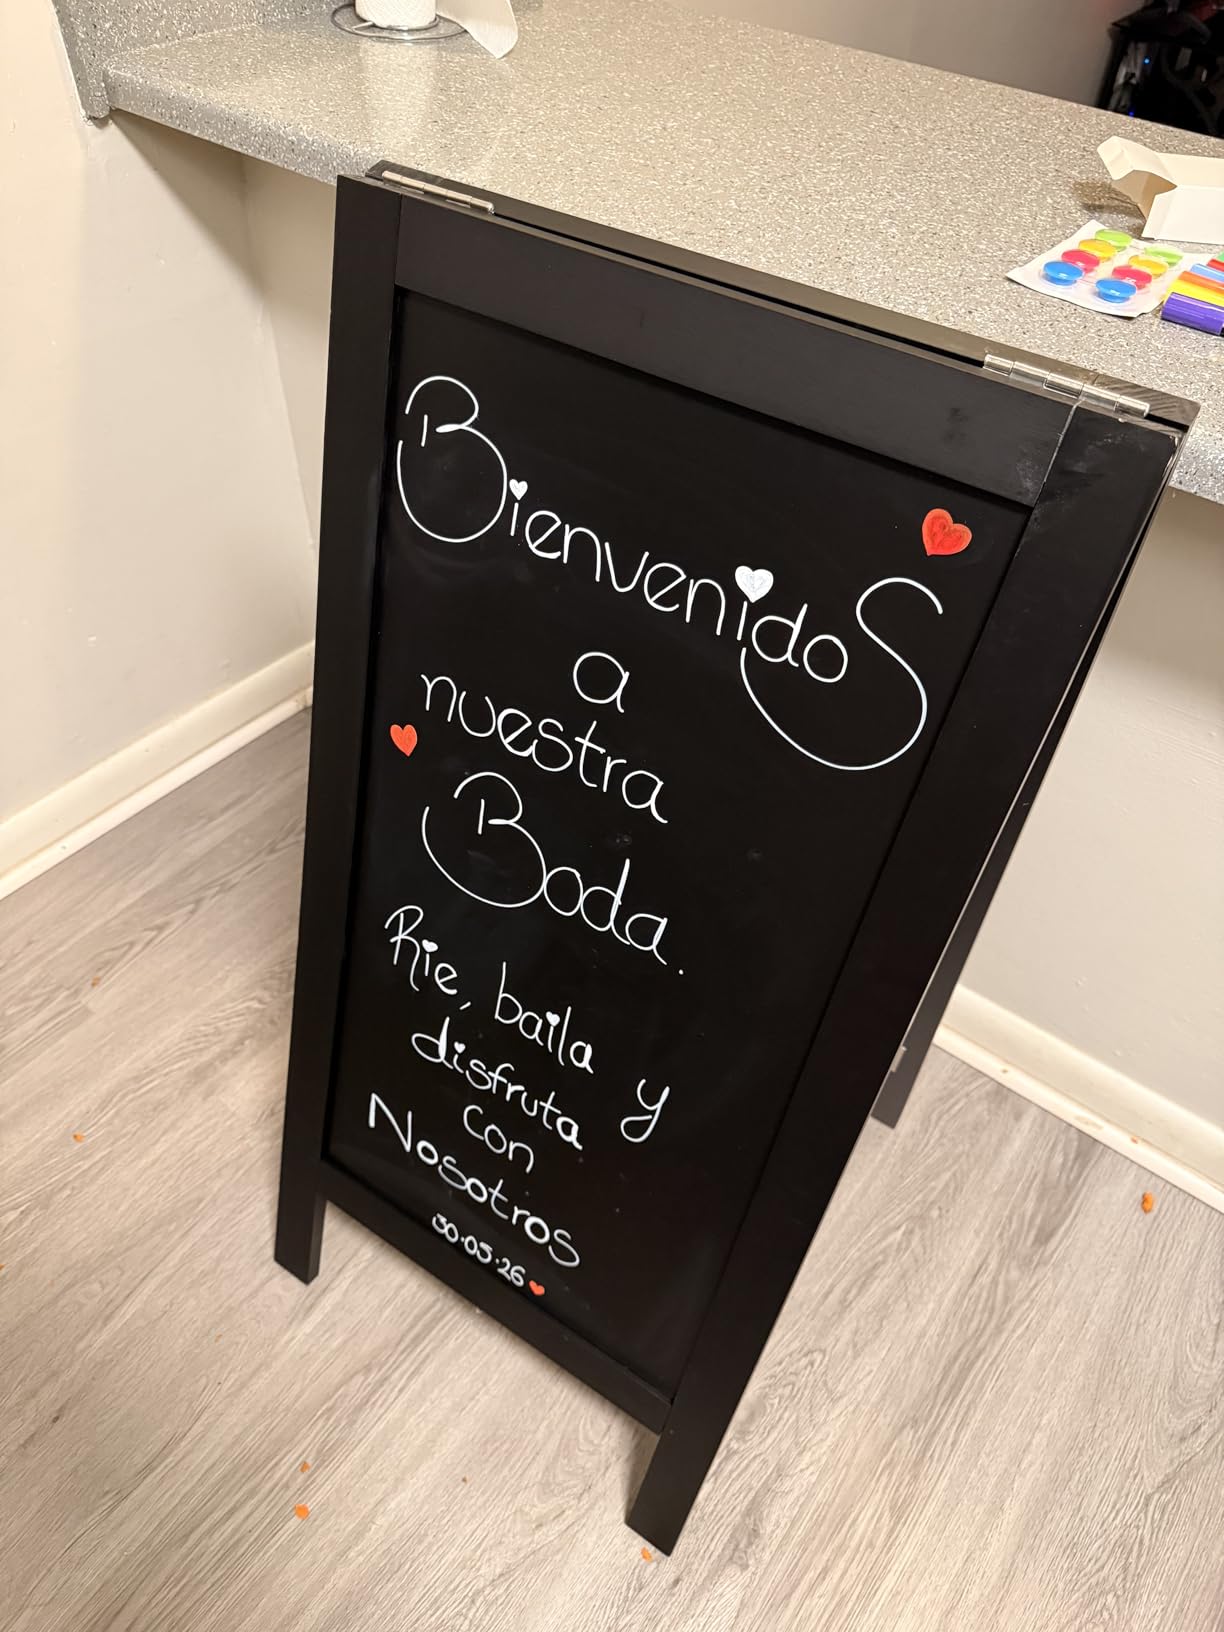 BienvenidoS
a
nuestra
Boda.
Rie, baila y
disfruta
con
Nosotros
30.05.26